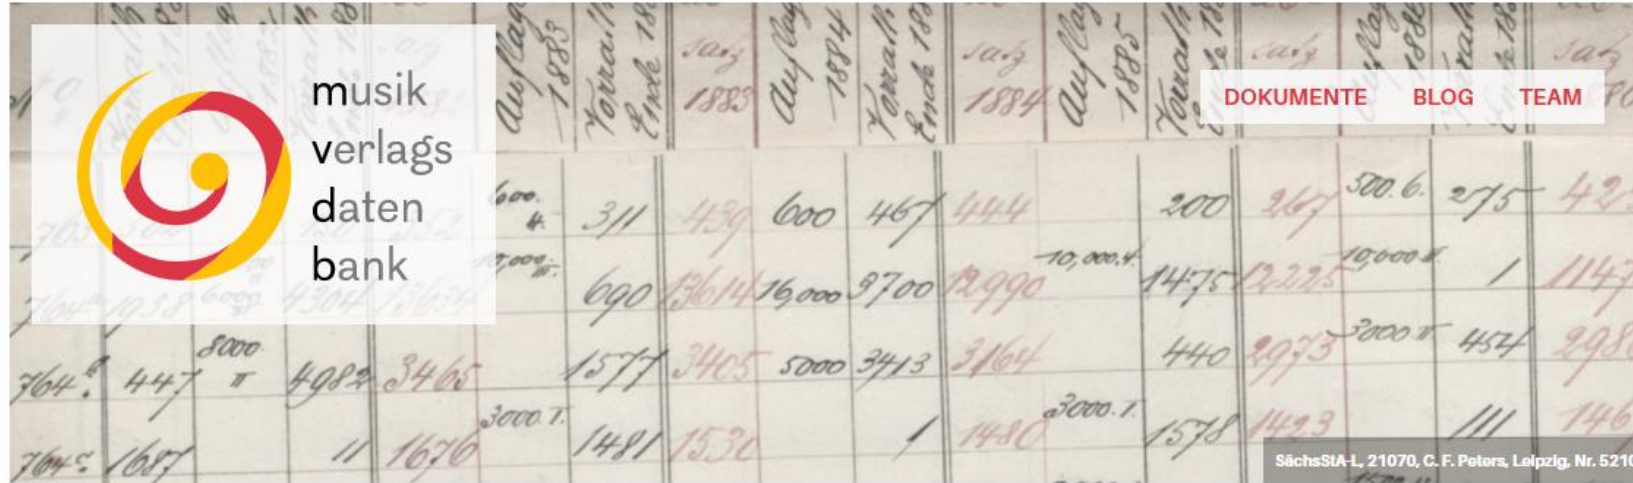 musik
verlags
daten
bank
DOKUMENTE BLOG TEAM
Auflage 1883 Vorrath Ende 188 satz 1883 Auflag 1884 Vorrath Ende 188 satz 1884 Auflag 1885 Vorrath satz
600. 311 439 600 467 444 200 267 500. 6. 275 42
10,000 690 13614 16,000 3700 12990 10,000. 1475 12225 10,000 1 1147
764 447 8000. II 4982 3465 1577 3405 5000 3413 3164 440 2973 3000 II 454 298
764 1687 11 1676 3000. T. 1481 1530 1 1480 3000. T. 1578 1423 111 146
SächsStA-L, 21070, C. F. Peters, Leipzig, Nr. 5210